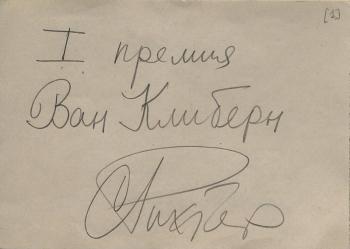 [1]
I премия
Ван Клиберн
Рихтер